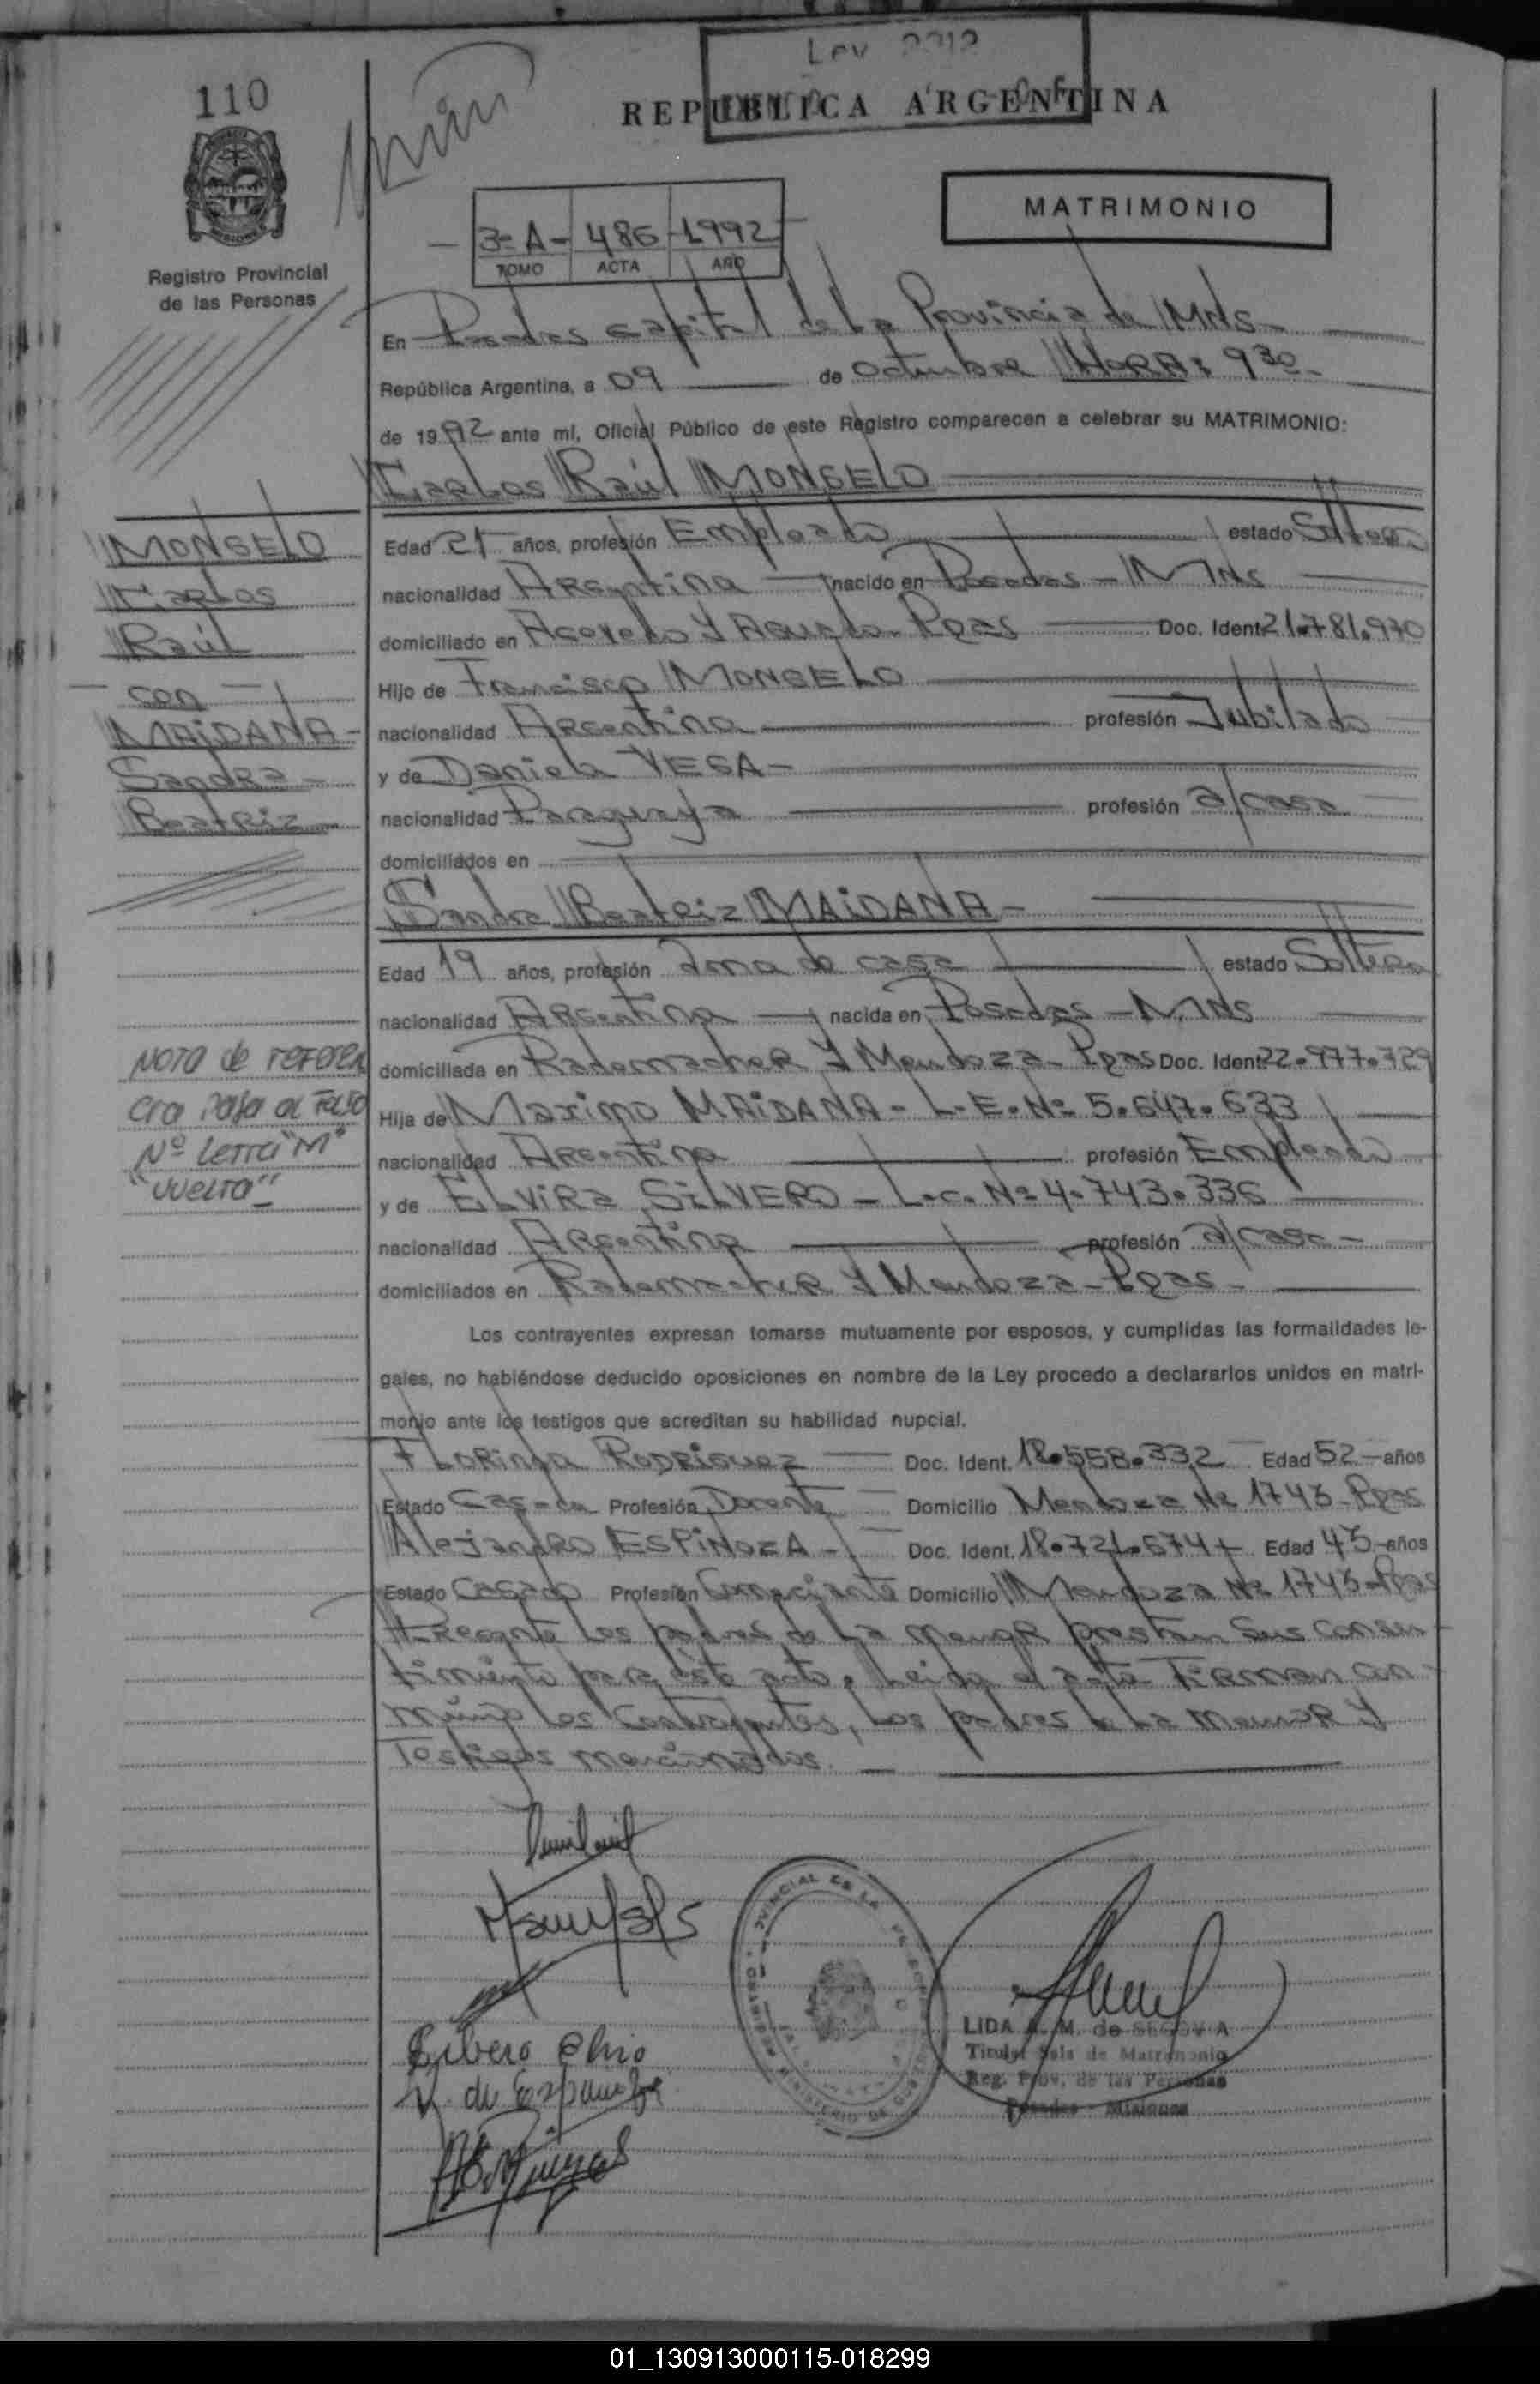 Ley 2312
110
REPUBLICA ARGENTINA
MATRIMONIO
3= A - 486 - 1992
TOMO ACTA AÑO
Registro Provincial
de las Personas
En Posadas capital de La Provincia de Mnes
República Argentina, a 09 de Octubre HORA: 9 30
de 1992 ante mí, Oficial Público de este Registro comparecen a celebrar su MATRIMONIO:
Carlos Raúl MONGELO
MONGELO
Carlos
Raúl
con
MAiDANA -
Sandra -
Beatriz
Edad 21 años, profesión Empleado estado Soltero
nacionalidad Argentina nacido en Posadas - Mnes
domiciliado en Acevedo Y Agudo - Pdas Doc. Ident. 21.781.970
Hijo de Francisco MONGELO
nacionalidad Argentina profesión Jubilado
y de Daniela VEGA -
nacionalidad Paraguaya profesión a/casa
domiciliados en
Sandra Beatriz MAiDANA -
Edad 19 años, profesión Ama de casa estado Soltera
nacionalidad Argentina nacida en Posadas - Mnes
domiciliada en Rademacher Y Mendoza - Pdas Doc. Ident. 22.977.729
Hija de Maximo MAiDANA - L.E.Nº 5.647.633
nacionalidad Argentina profesión Empleado
y de ELVIRA SiLVERO - L.C. Nº 4.743.336
nacionalidad Argentina profesión a/casa -
domiciliados en Rademacher Y Mendoza - Pdas -
NOTA de referen
cia pasa al Folio
Nº Letra "M"
"vuelta"
Los contrayentes expresan tomarse mutuamente por esposos, y cumplidas las formalidades le-
gales, no habiéndose deducido oposiciones en nombre de la Ley procedo a declararlos unidos en matri-
monio ante los testigos que acreditan su habilidad nupcial.
FLORinda Rodriguez Doc. Ident. 18.558.332 Edad 52 años
Estado Casada Profesión Docente Domicilio Mendoza Nº 1743 - Pdas
Alejandro ESPiNOZA - Doc. Ident. 18.721.674 Edad 43 años
Estado Casado Profesión Comerciante Domicilio Mendoza Nº 1743 - Pdas
Presente los padres de La menor prestan sus consen
timiento para éste acto, Leida el acta Firman con
migo los Contrayentes, los padres de La menor Y
Testigos mencionados.
LIDA A. M. de SEGOVIA
Titular Sala de Matrimonio
Reg. Prov. de las Personas
Posadas - Misiones
01_130913000115-018299